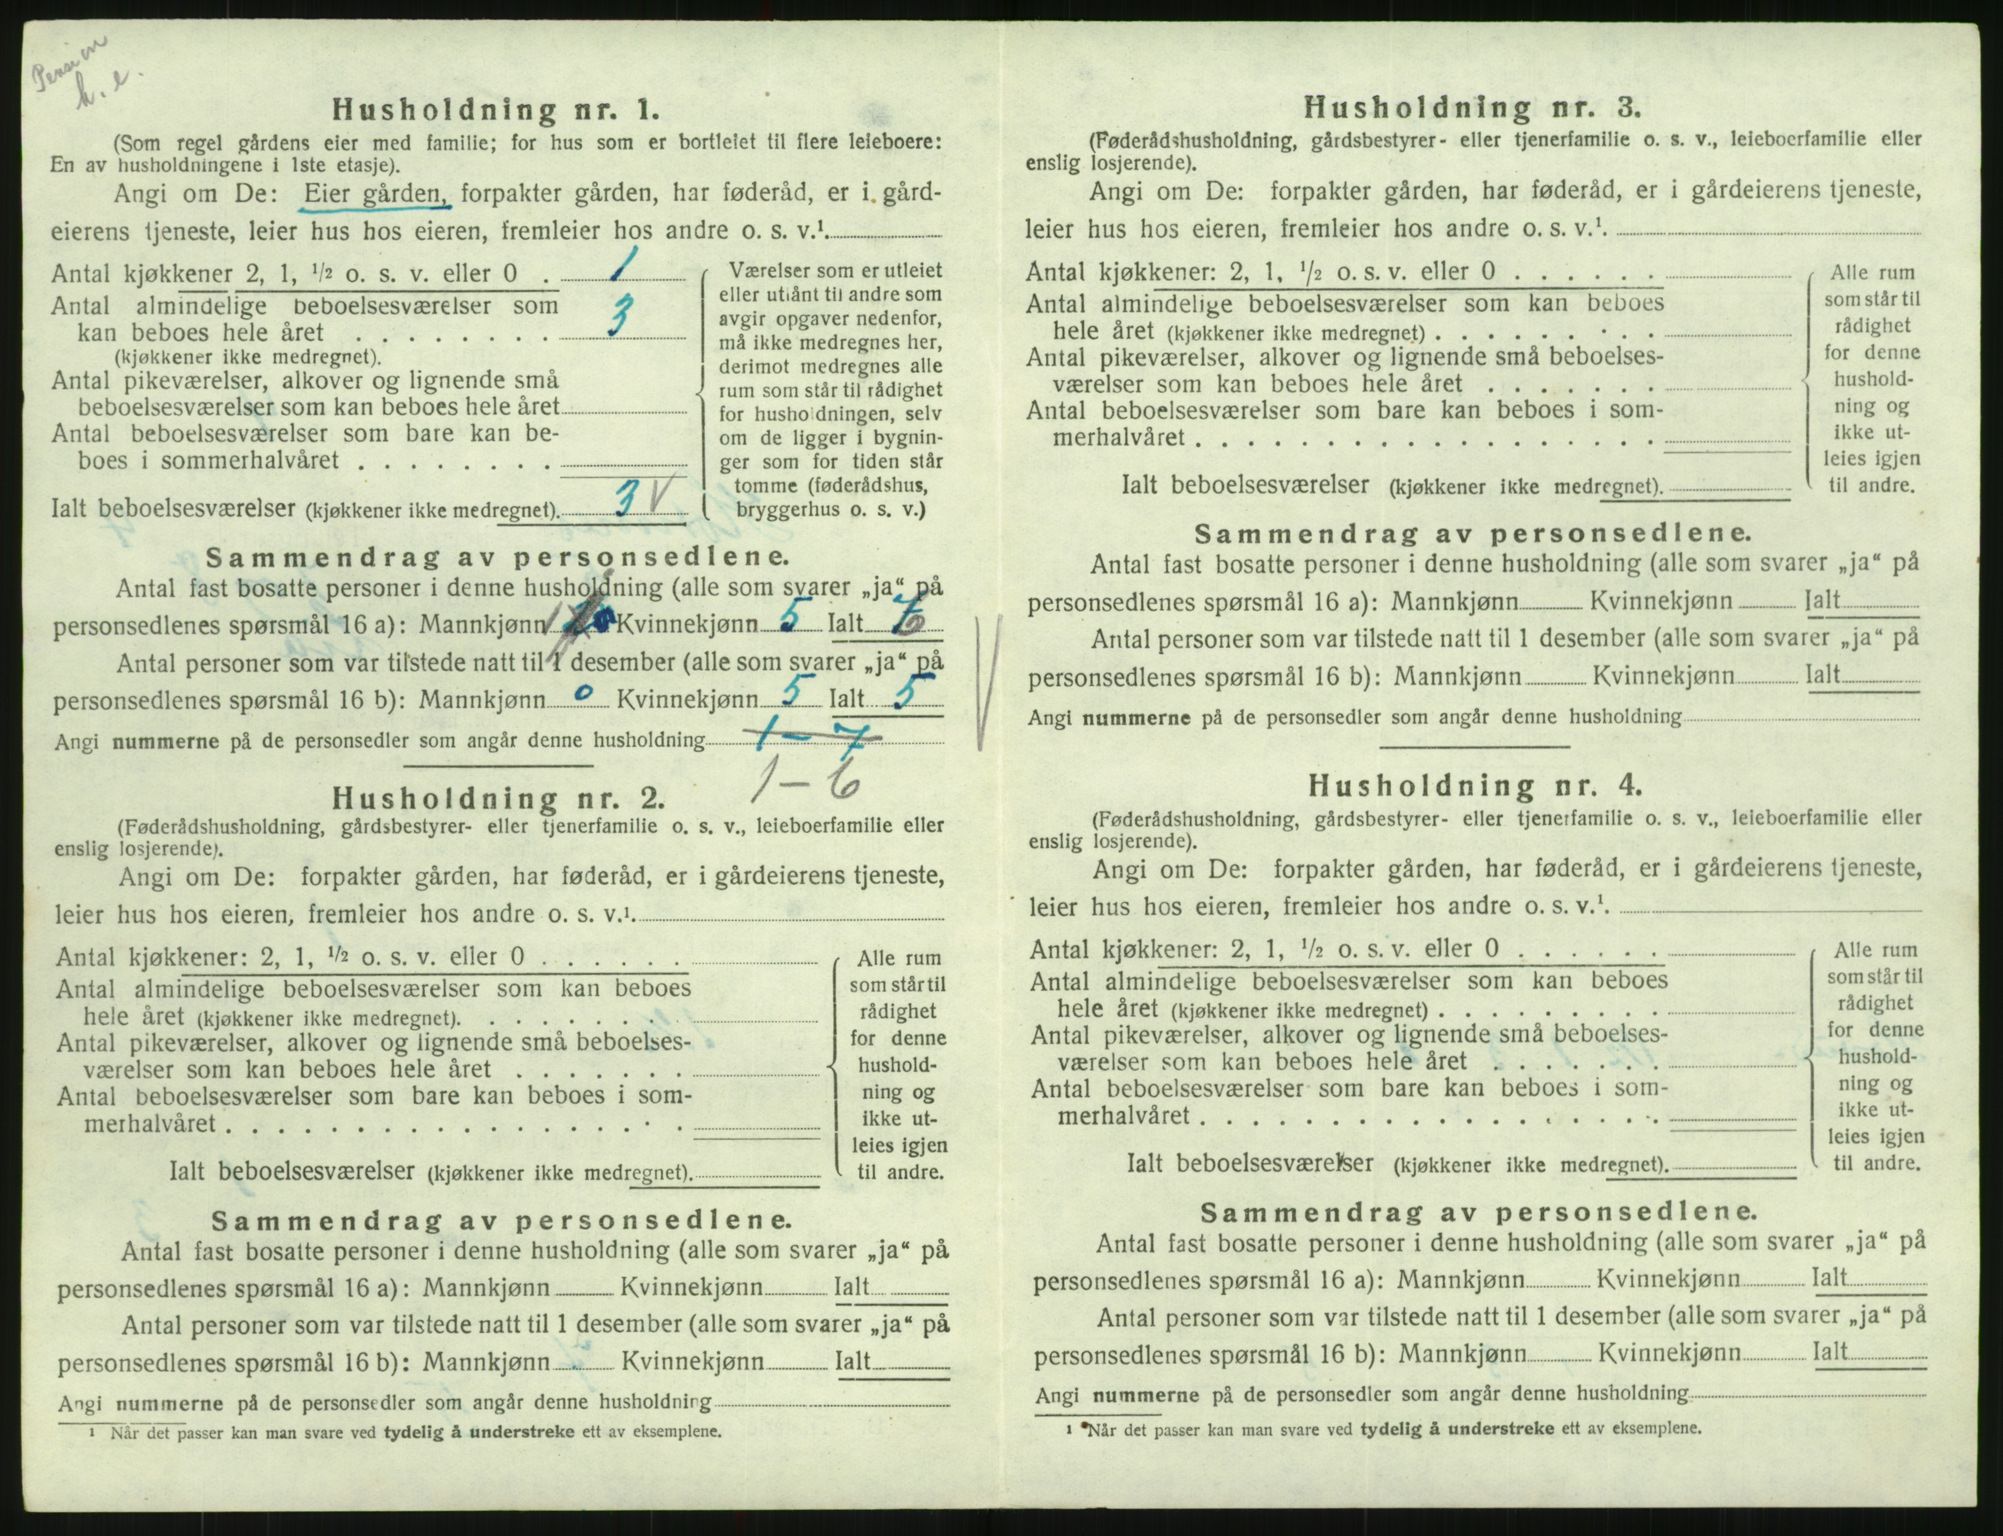 Pension
h. e.
Husholdning nr. 1.
(Som regel gårdens eier med familie; for hus som er bortleiet til flere leieboere:
En av husholdningene i 1ste etasje).
Angi om De: Eier gården, forpakter gården, har føderåd, er i gård-
eierens tjeneste, leier hus hos eieren, fremleier hos andre o. s. v.¹.
Antal kjøkkener 2, 1, ½ o. s. v. eller 0 . 1
Antal almindelige beboelsesværelser som
kan beboes hele året . . . . . . . . 3
(kjøkkener ikke medregnet).
Antal pikeværelser, alkover og lignende små
beboelsesværelser som kan beboes hele året
Antal beboelsesværelser som bare kan be-
boes i sommerhalvåret . . . . . . . .
Ialt beboelsesværelser (kjøkkener ikke medregnet). 3 V
Værelser som er utleiet
eller utlånt til andre som
avgir opgaver nedenfor,
må ikke medregnes her,
derimot medregnes alle
rum som står til rådighet
for husholdningen, selv
om de ligger i bygnin-
ger som for tiden står
tomme (føderådshus,
bryggerhus o. s. v.)
Sammendrag av personsedlene.
Antal fast bosatte personer i denne husholdning (alle som svarer „ja“ på
personsedlenes spørsmål 16 a): Mannkjønn 1 Kvinnekjønn 5 Ialt 6
Antal personer som var tilstede natt til 1 desember (alle som svarer „ja“ på
personsedlenes spørsmål 16 b): Mannkjønn 0 Kvinnekjønn 5 Ialt 5
Angi nummerne på de personsedler som angår denne husholdning 1 – 7
1 – 6
Husholdning nr. 2.
(Føderådshusholdning, gårdsbestyrer- eller tjenerfamilie o. s. v., leieboerfamilie eller
enslig losjerende).
Angi om De: forpakter gården, har føderåd, er i gårdeierens tjeneste,
leier hus hos eieren, fremleier hos andre o. s. v.¹.
Antal kjøkkener: 2, 1, ½ o. s. v. eller 0 . . . . . .
Antal almindelige beboelsesværelser som kan beboes
hele året (kjøkkener ikke medregnet). . . . . . . .
Antal pikeværelser, alkover og lignende små beboelses-
værelser som kan beboes hele året . . . . . . .
Antal beboelsesværelser som bare kan beboes i som-
merhalvåret . . . . . . . . . . . . . . . . . .
Ialt beboelsesværelser (kjøkkener ikke medregnet).
Alle rum
som står til
rådighet
for denne
hushold-
ning og
ikke ut-
leies igjen
til andre.
Sammendrag av personsedlene.
Antal fast bosatte personer i denne husholdning (alle som svarer „ja“ på
personsedlenes spørsmål 16 a): Mannkjønn Kvinnekjønn Ialt
Antal personer som var tilstede natt til 1 desember (alle som svarer „ja“ på
personsedlenes spørsmål 16 b): Mannkjønn Kvinnekjønn Ialt
Angi nummerne på de personsedler som angår denne husholdning
¹ Når det passer kan man svare ved tydelig å understreke ett av eksemplene.
Husholdning nr. 3.
(Føderådshusholdning, gårdsbestyrer- eller tjenerfamilie o. s. v., leieboerfamilie eller
enslig losjerende).
Angi om De: forpakter gården, har føderåd, er i gårdeierens tjeneste,
leier hus hos eieren, fremleier hos andre o. s. v.¹.
Antal kjøkkener: 2, 1, ½ o. s. v. eller 0 . . . . . .
Antal almindelige beboelsesværelser som kan beboes
hele året (kjøkkener ikke medregnet) . . . . . . . . .
Antal pikeværelser, alkover og lignende små beboelses-
værelser som kan beboes hele året . . . . . . .
Antal beboelsesværelser som bare kan beboes i som-
merhalvåret . . . . . . . . . . . . . . . . . .
Ialt beboelsesværelser (kjøkkener ikke medregnet).
Alle rum
som står til
rådighet
for denne
hushold-
ning og
ikke ut-
leies igjen
til andre.
Sammendrag av personsedlene.
Antal fast bosatte personer i denne husholdning (alle som svarer „ja“ på
personsedlenes spørsmål 16 a): Mannkjønn Kvinnekjønn Ialt
Antal personer som var tilstede natt til 1 desember (alle som svarer „ja“ på
personsedlenes spørsmål 16 b): Mannkjønn Kvinnekjønn Ialt
Angi nummerne på de personsedler som angår denne husholdning
Husholdning nr. 4.
(Føderådshusholdning, gårdsbestyrer- eller tjenerfamilie o. s. v., leieboerfamilie eller
enslig losjerende).
Angi om De: forpakter gården, har føderåd, er i gårdeierens tjeneste,
leier hus hos eieren, fremleier hos andre o. s. v.¹.
Antal kjøkkener: 2, 1, ½ o. s. v. eller 0 . . . . . .
Antal almindelige beboelsesværelser som kan beboes
hele året (kjøkkener ikke medregnet) . . . . . . . . .
Antal pikeværelser, alkover og lignende små beboelses-
værelser som kan beboes hele året . . . . . . .
Antal beboelsesværelser som bare kan beboes i som-
merhalvåret . . . . . . . . . . . . . . . . . .
Ialt beboelsesværelser (kjøkkener ikke medregnet).
Alle rum
som står til
rådighet
for denne
hushold-
ning og
ikke ut-
leies igjen
til andre.
Sammendrag av personsedlene.
Antal fast bosatte personer i denne husholdning (alle som svarer „ja“ på
personsedlenes spørsmål 16 a): Mannkjønn Kvinnekjønn Ialt
Antal personer som var tilstede natt til 1 desember (alle som svarer „ja“ på
personsedlenes spørsmål 16 b): Mannkjønn Kvinnekjønn Ialt
Angi nummerne på de personsedler som angår denne husholdning
¹ Når det passer kan man svare ved tydelig å understreke ett av eksemplene.